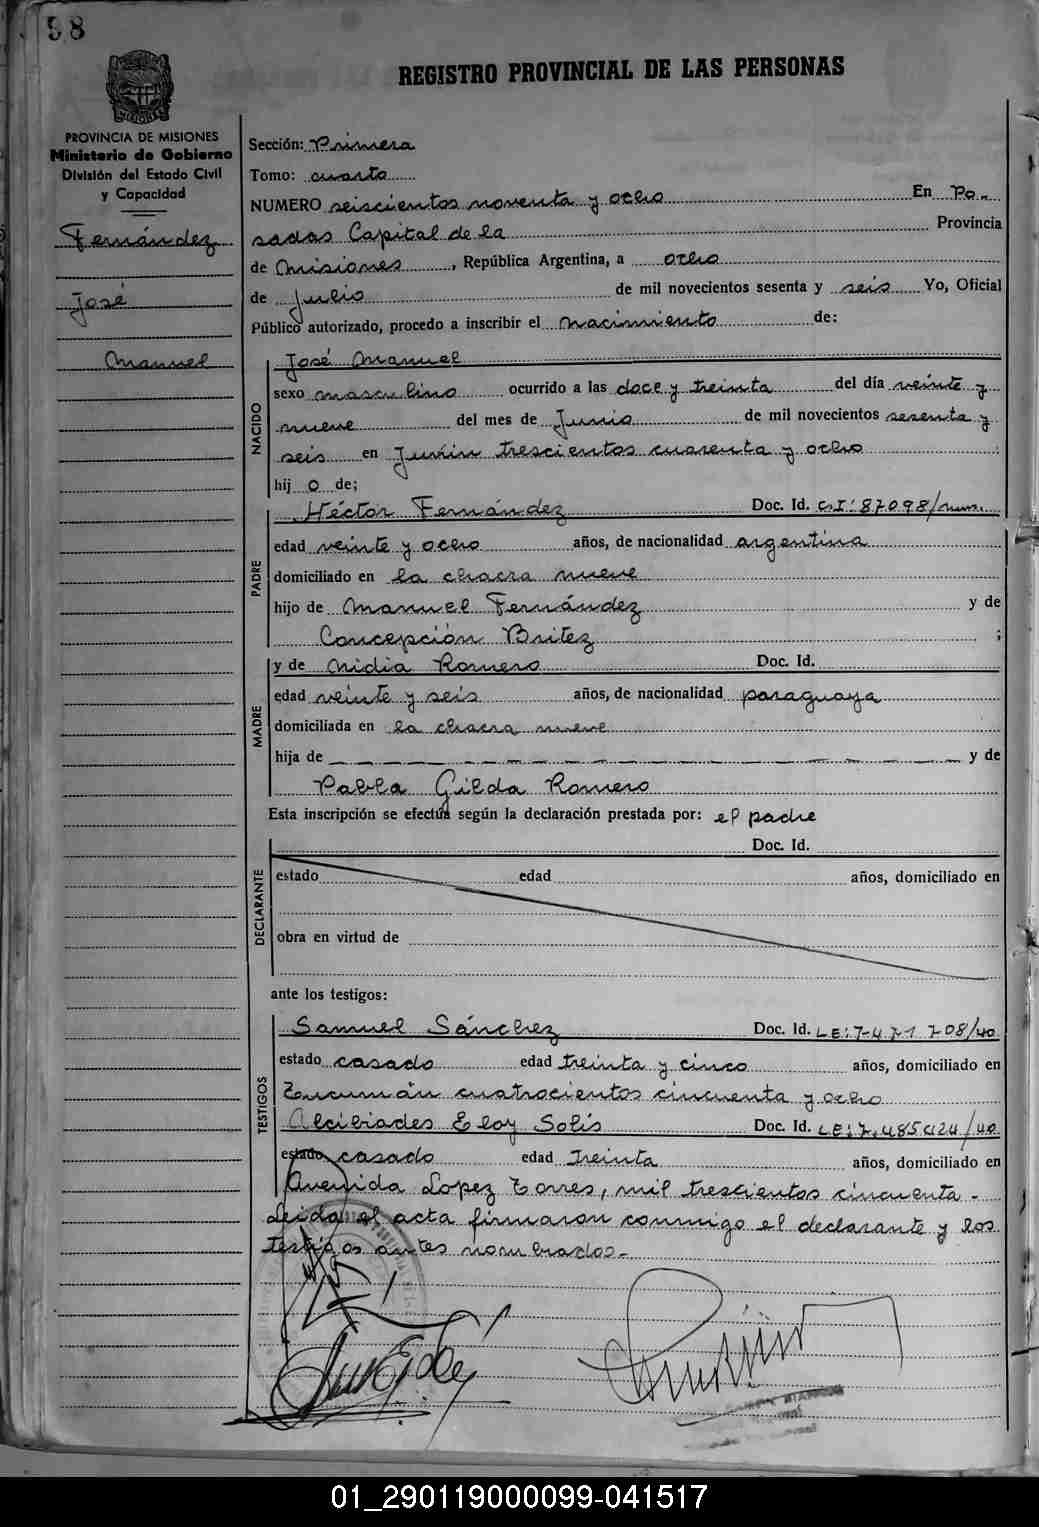 98
REGISTRO PROVINCIAL DE LAS PERSONAS
PROVINCIA DE MISIONES
Ministerio de Gobierno
División del Estado Civil
y Capacidad
Fernández
José
Manuel
Sección: Primera
Tomo: cuarto
NUMERO seiscientos noventa y ocho En Po-
sadas Capital de la Provincia
de Misiones, República Argentina, a ocho
de Julio de mil novecientos sesenta y seis Yo, Oficial
Público autorizado, procedo a inscribir el nacimiento de:
NACIDO
José Manuel
sexo masculino ocurrido a las doce y treinta del día veinte y
nueve del mes de Junio de mil novecientos sesenta y
seis en Junín trescientos cuarenta y ocho
hij o de;
PADRE
Héctor Fernández Doc. Id. C.I: 87098/
edad veinte y ocho años, de nacionalidad argentina
domiciliado en la chacra nueve
hijo de Manuel Fernández y de
Concepción Britez ;
MADRE
y de Nidia Romero Doc. Id.
edad veinte y seis años, de nacionalidad paraguaya
domiciliada en la chacra nueve
hija de y de
Pabla Gilda Romero
Esta inscripción se efectúa según la declaración prestada por: el padre
DECLARANTE
Doc. Id.
estado edad años, domiciliado en
obra en virtud de
ante los testigos:
TESTIGOS
Samuel Sánchez Doc. Id. LE: 7.471.708/40
estado casado edad treinta y cinco años, domiciliado en
Tucumán cuatrocientos cincuenta y ocho
Alcibiades Eloy Solis Doc. Id. LE: 7.485.424/40
estado casado edad treinta años, domiciliado en
Avenida Lopez Torres, mil trescientos cincuenta.-
Leída el acta firmaron conmigo el declarante y los
testigos antes nombrados.-
01_290119000099-041517